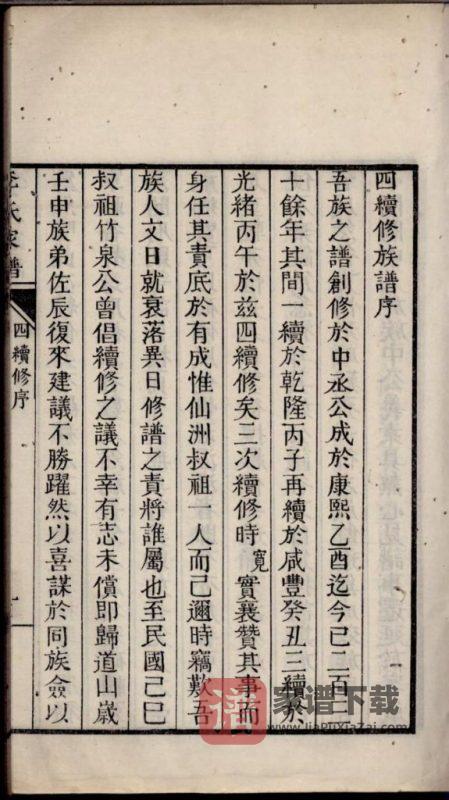 四續修族譜序
吾族之譜創修於中丞公成於康熙乙酉迄今已二百三
十餘年其間一續於乾隆丙子再續於咸豐癸丑三續於
光緒丙午於茲四續修矣三次續修時寬實襄贊其事而
身任其責底於有成惟仙洲叔祖一人而已邇時竊歎吾
族人文日就衰落異日修譜之責將誰屬也至民國己巳
叔祖竹泉公曾倡續修之議不幸有志未償即歸道山歲
壬申族弟佐辰復來建議不勝躍然以喜謀於同族僉以
氏家譜
四續修序
一
譜
家谱下载
www.jiaPuXiaZai.com